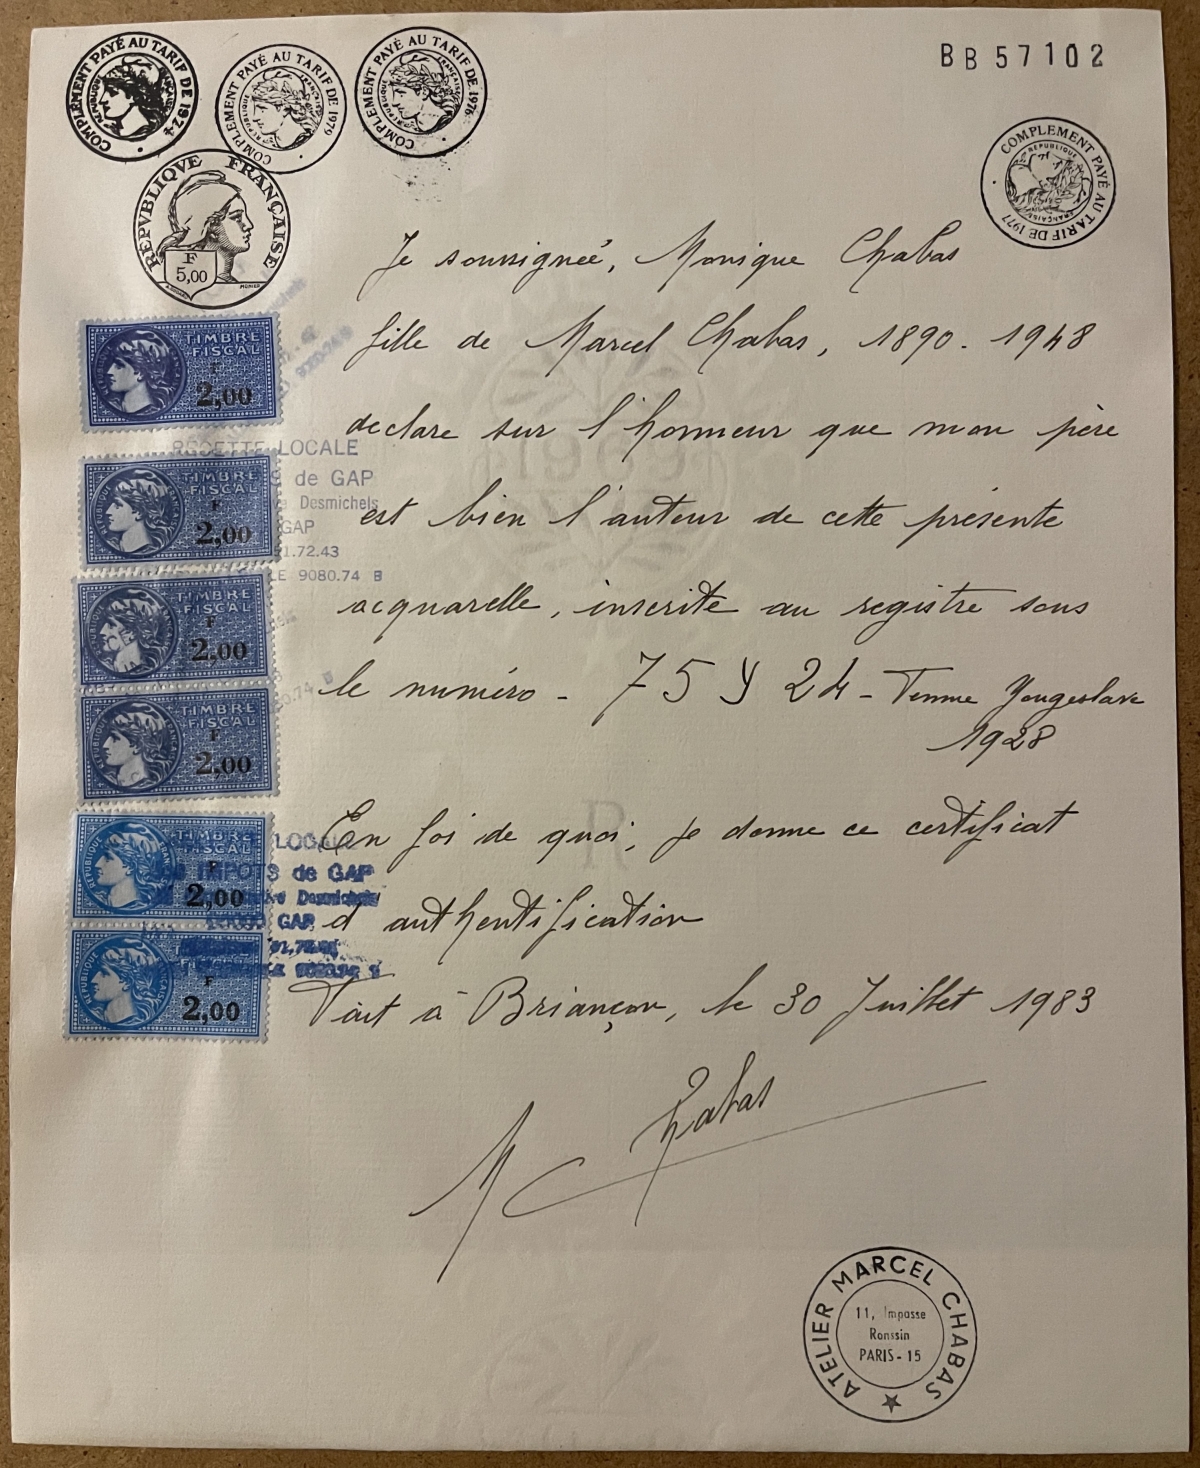 COMPLÉMENT PAYÉ AU TARIF DE 1974
RÉPUBLIQUE FRANÇAISE
COMPLÉMENT PAYÉ AU TARIF DE 1979
RÉPUBLIQUE FRANÇAISE
COMPLÉMENT PAYÉ AU TARIF DE 1976
RÉPUBLIQUE FRANÇAISE
BB 57102
COMPLEMENT PAYÉ AU TARIF DE 1977
RÉPUBLIQUE FRANÇAISE
RÉPVBLIQVE FRANÇAISE
F
5,00
Je soussignée, Monique Chabas
fille de Marcel Chabas, 1890 - 1948
declare sur l'honneur que mon père
est bien l'auteur de cette présente
acquarelle, inscrite au registre sous
le numéro - 75 Y 24 - Femme Yougoslave
1928
En foi de quoi, je donne ce certificat
d'authentification
Fait à Briançon, le 30 Juillet 1983
M Chabas
TIMBRE
FISCAL
F
2,00
RECETTE LOCALE
TIMBRE
FISCAL
F
2,00
S de GAP
Desmichels
GAP
1.72.43
LE 9080.74 B
TIMBRE
FISCAL
F
2,00
TIMBRE
FISCAL
F
2,00
TIMBRE
FISCAL
F
2,00
LOCALE
IMPOTS de GAP
Desmichels
GAP
F
2,00
ATELIER MARCEL CHABAS
11, Impasse
Ronssin
PARIS - 15